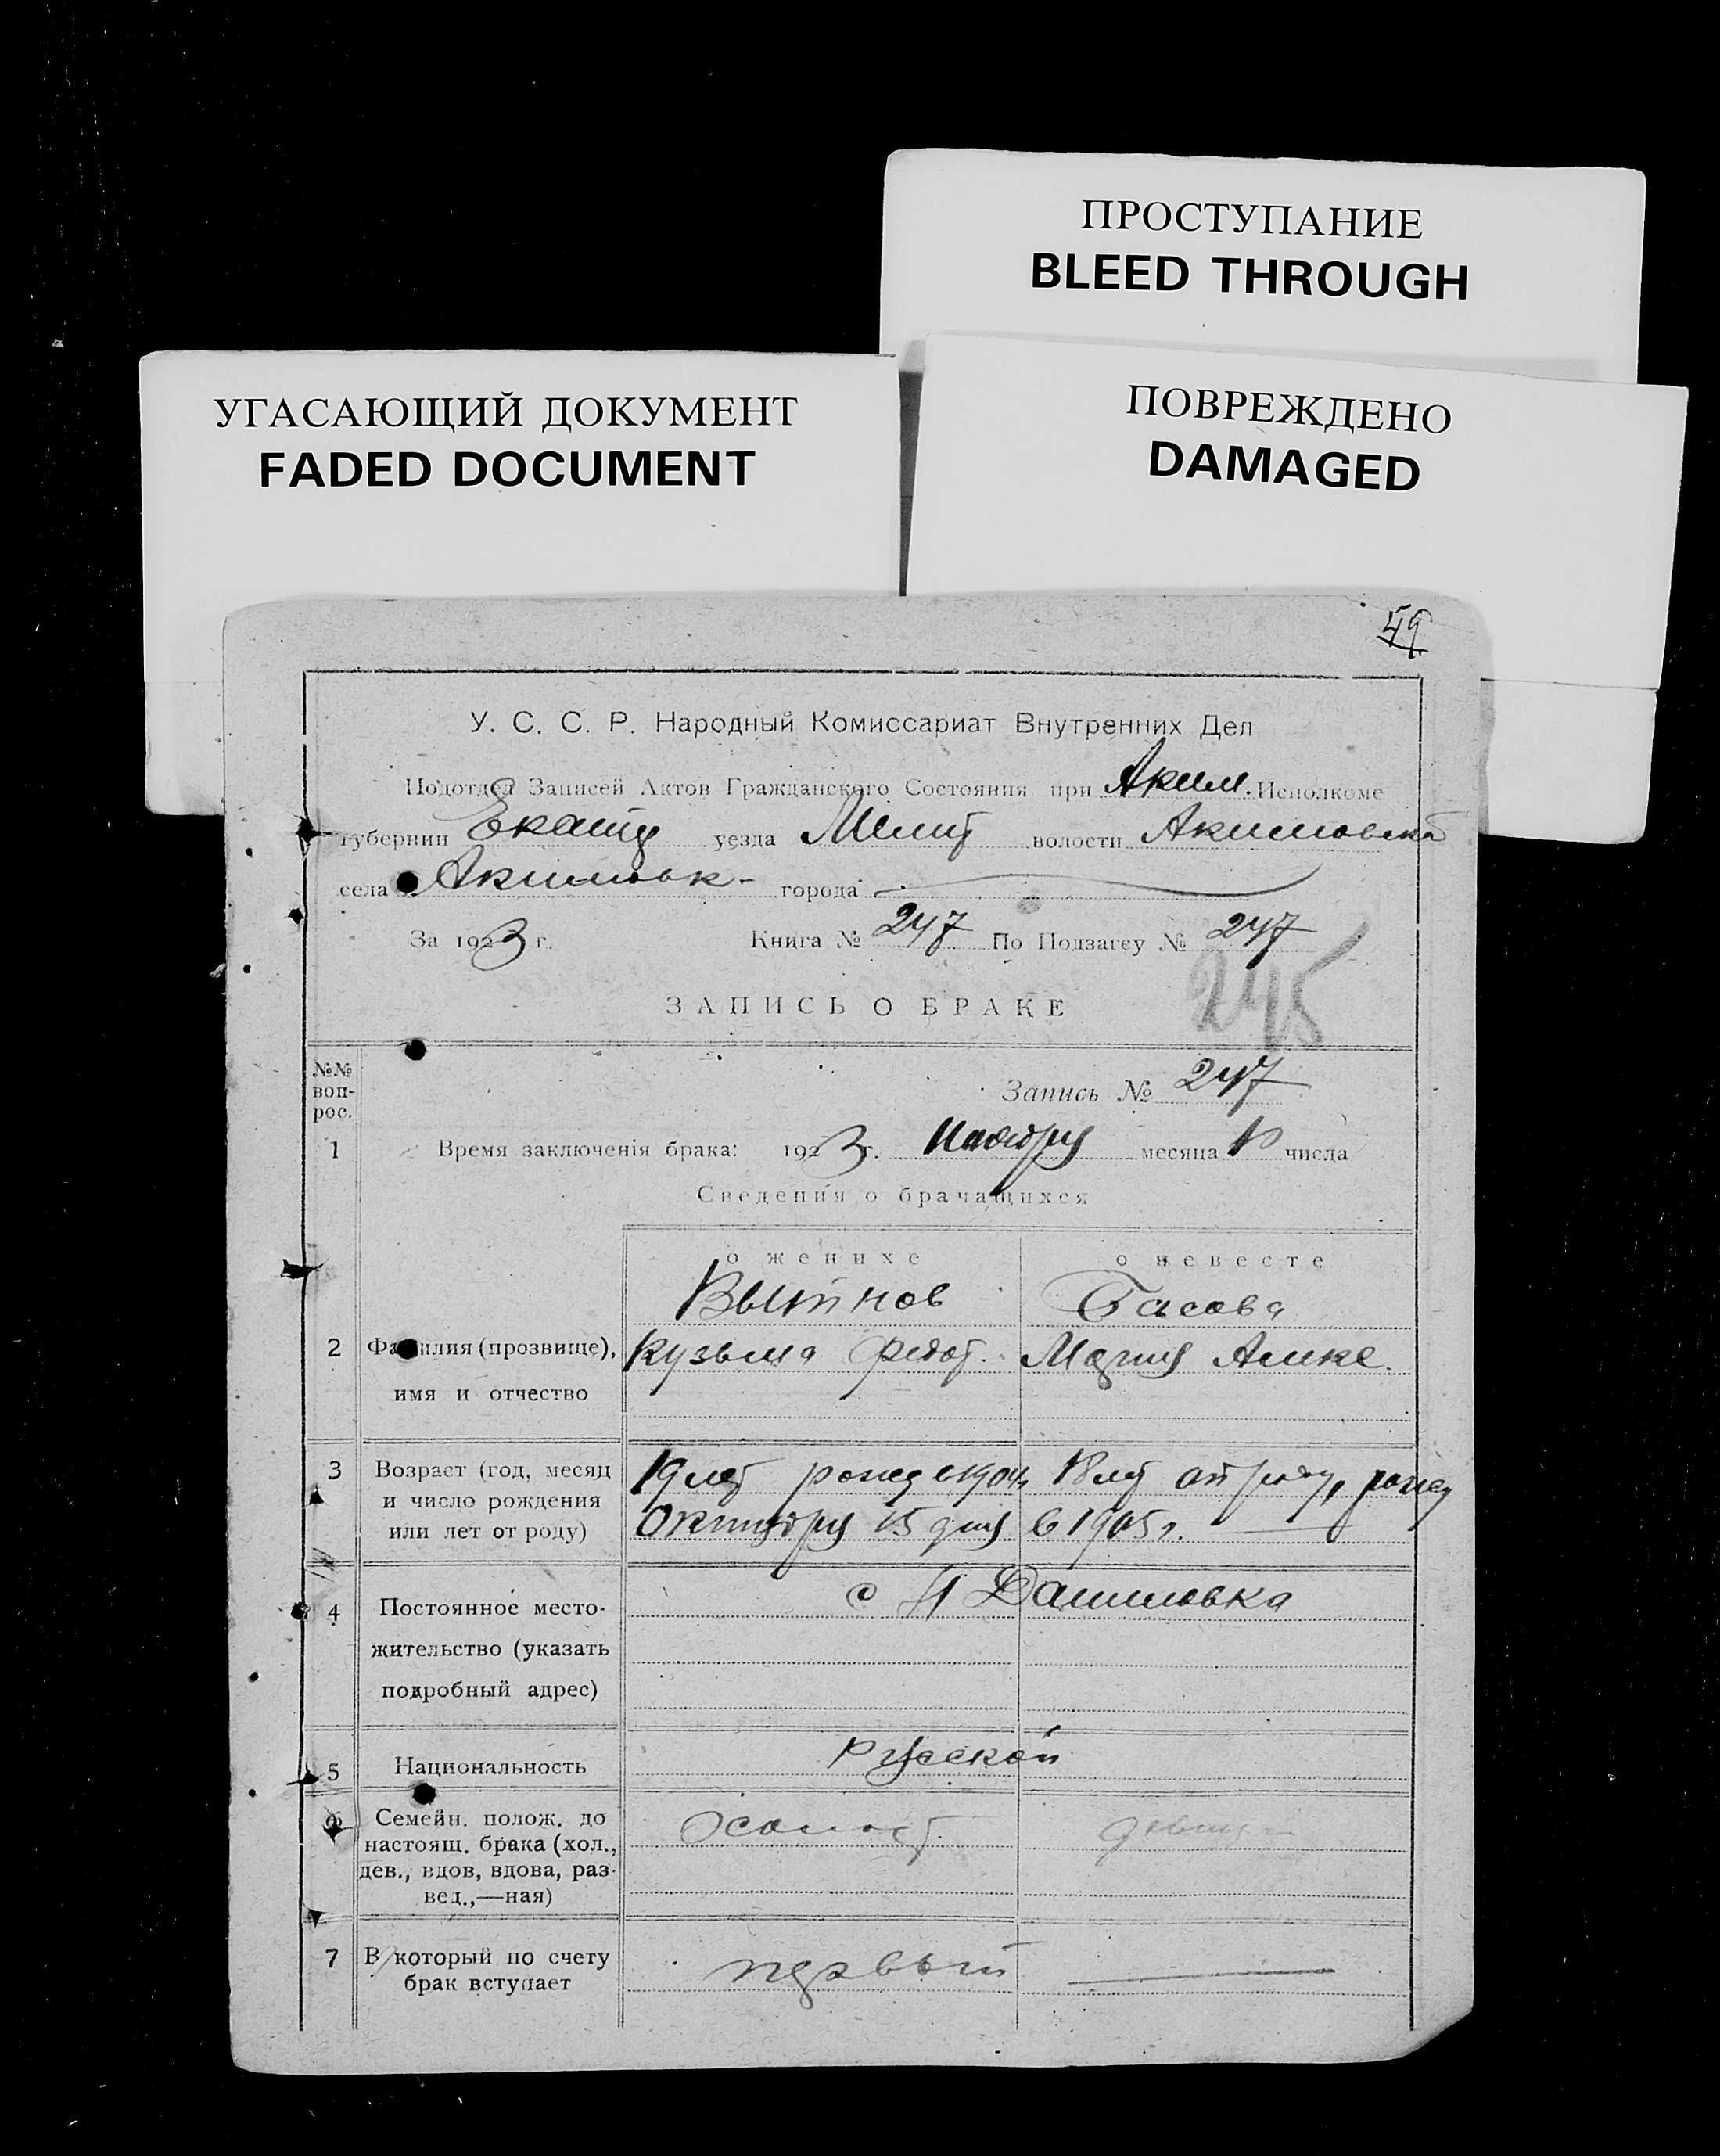 ПРОСТУПАНИЕ
BLEED THROUGH
УГАСАЮЩИЙ ДОКУМЕНТ
FADED DOCUMENT
ПОВРЕЖДЕНО
DAMAGED
49
У. С. С. Р. Народный Комиссариат Внутренних Дел
Подотдел Записей Актов Гражданского Состояния при Аким. Исполкоме
губернии уезда Мелит волости Акимовской
села Акимовк- города
За 1923 г. Книга № 247 По Подзагсу № 247
245
ЗАПИСЬ О БРАКЕ
№№ воп-рос.
Запись № 247
1 Время заключенія брака: 1923 г. Ноября месяца числа
Сведения о брачащихся
о женихе о невесте
Басова
2 Фамилия (прозвище), Кузьма Федот. Мария Алике.
имя и отчество
3 Возраст (год, месяц 19 лет рожд 1904 18 лет от роду, рожд
и число рождения Октября 15 дня в 1905 г.
или лет от роду)
4 Постоянное место- с Н Даниловка
жительство (указать
подробный адрес)
5 Национальность Русской
6 Семейн. полож. до холост девица
настоящ. брака (хол.,
дев., вдов, вдова, раз-
вед.,—ная)
7 В который по счету первый
брак вступает